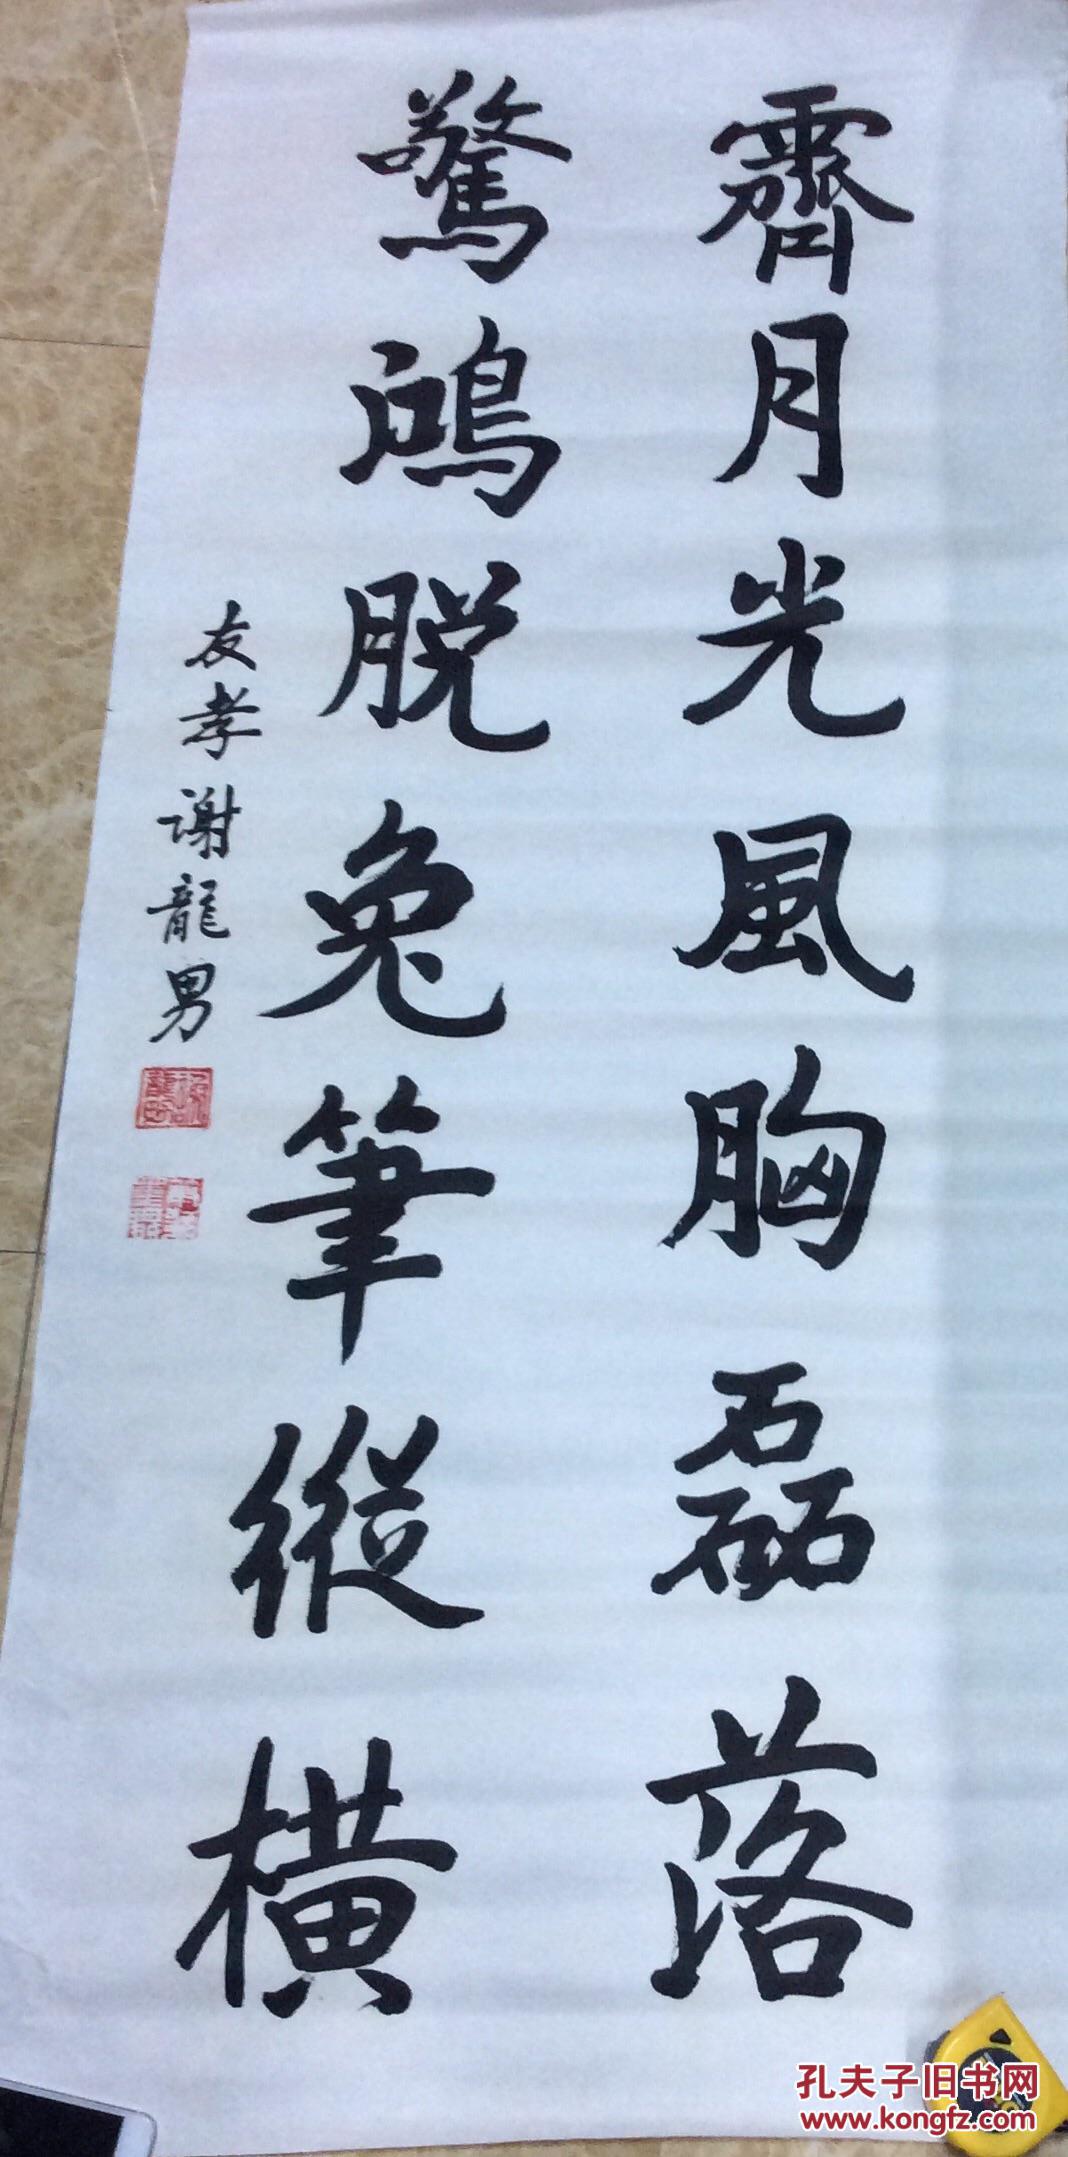 霽月光風胸磊落
驚鴻脱兔筆縱橫
友孝谢龍男
孔夫子旧书网
www.kongfz.com